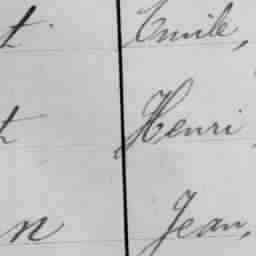 t Emile,
t Henri
n Jean,